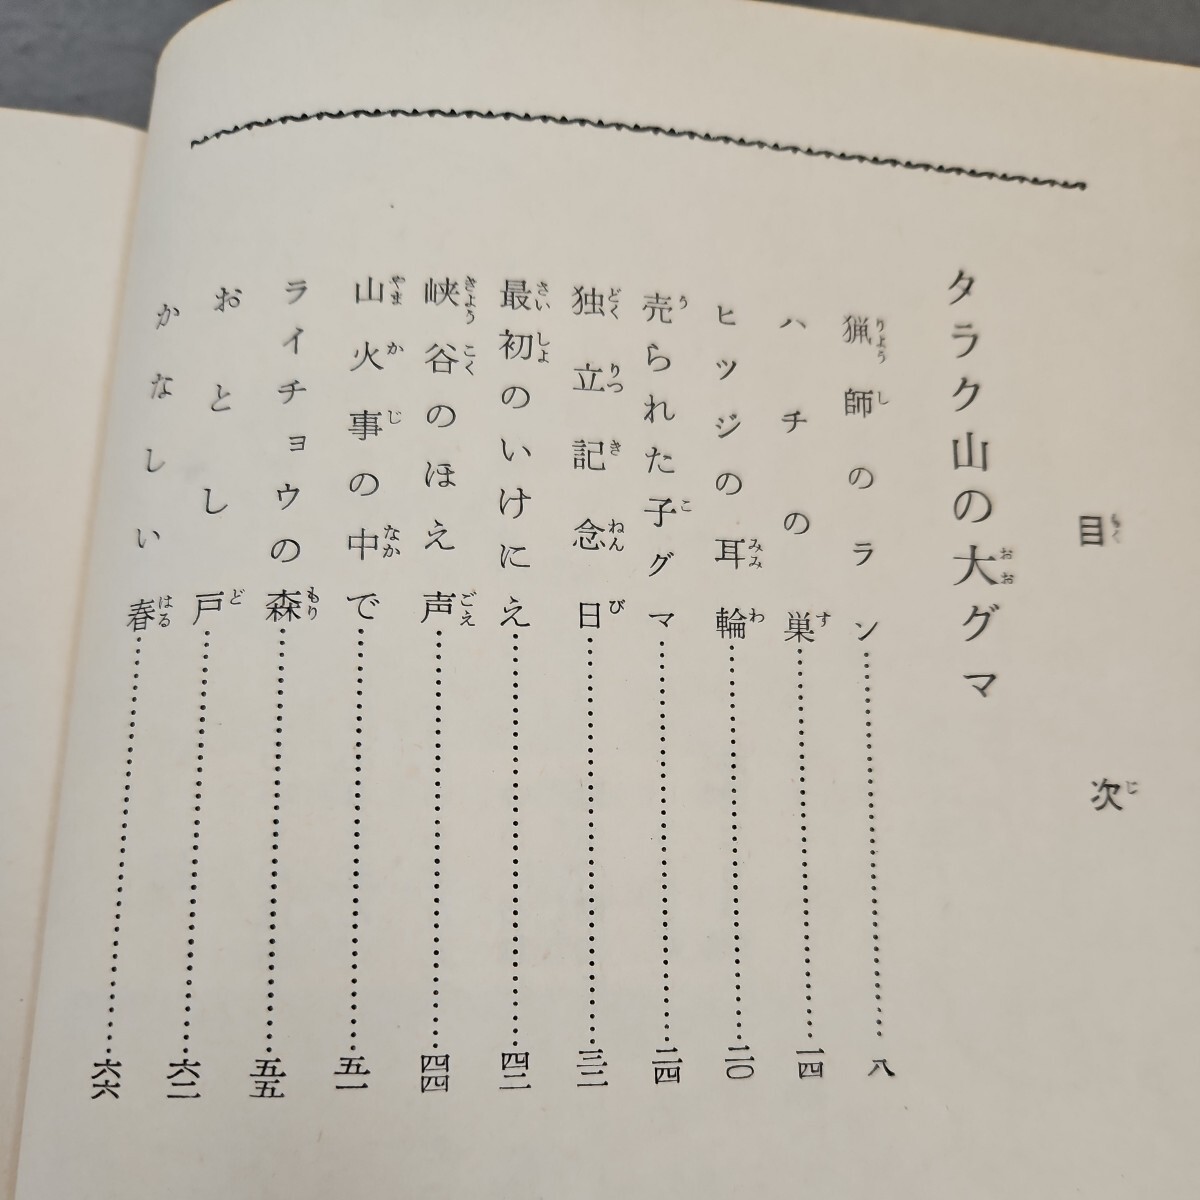 目次
タラク山の大グマ
猟師のラン……八
ハチの巣……一四
ヒツジの耳輪……二〇
売られた子グマ……二四
独立記念日……三二
最初のいけにえ……四二
峡谷のほえ声……四四
山火事の中で……五一
ライチョウの森……五五
おとし戸……六二
かなしい春……六六